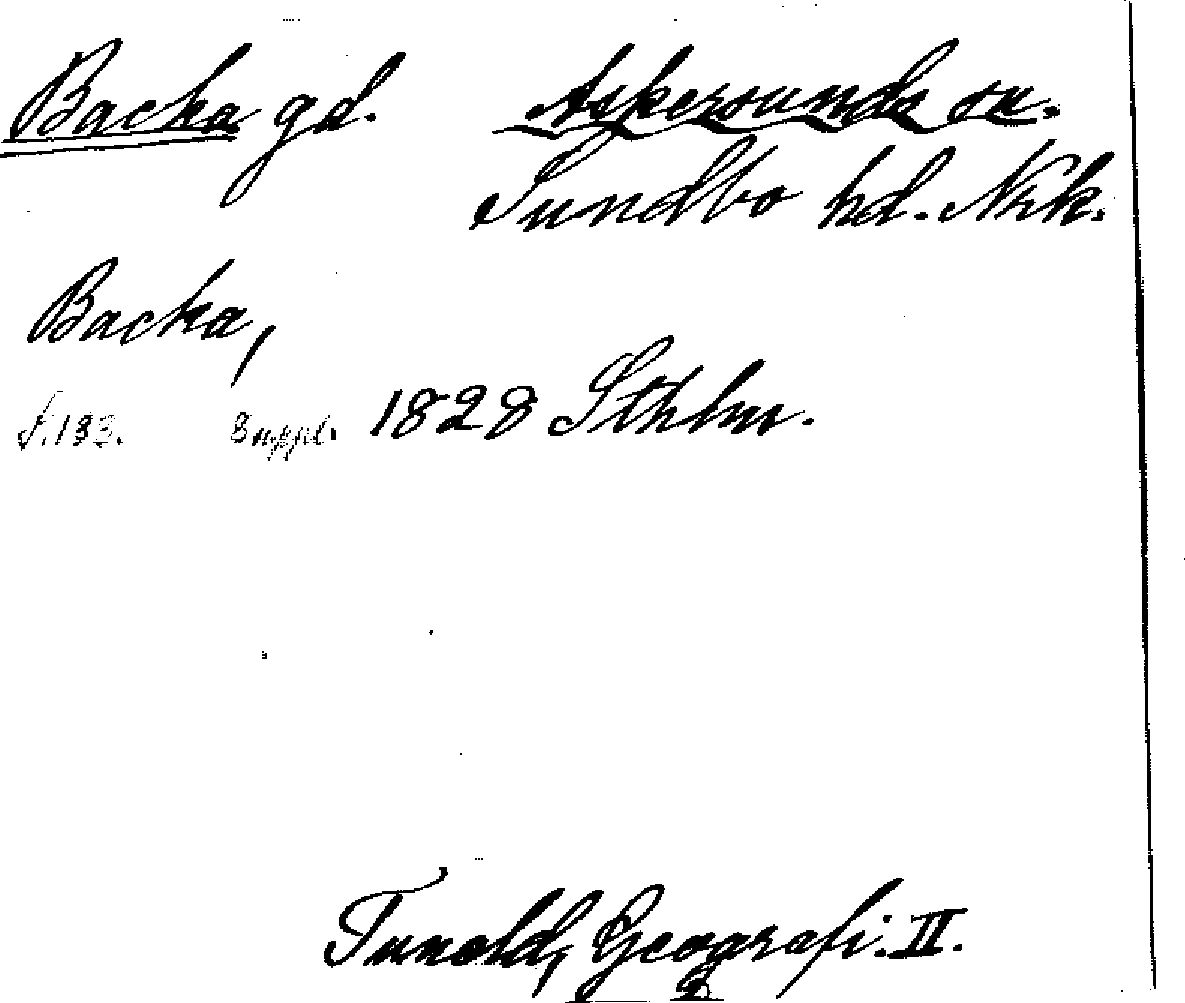 Backa gd. Askersunds sn.
Sundbo hd. Nrk.
Backa,
s. 133. Suppl. 1828 Sthlm.
Tuneld, Geografi. II.